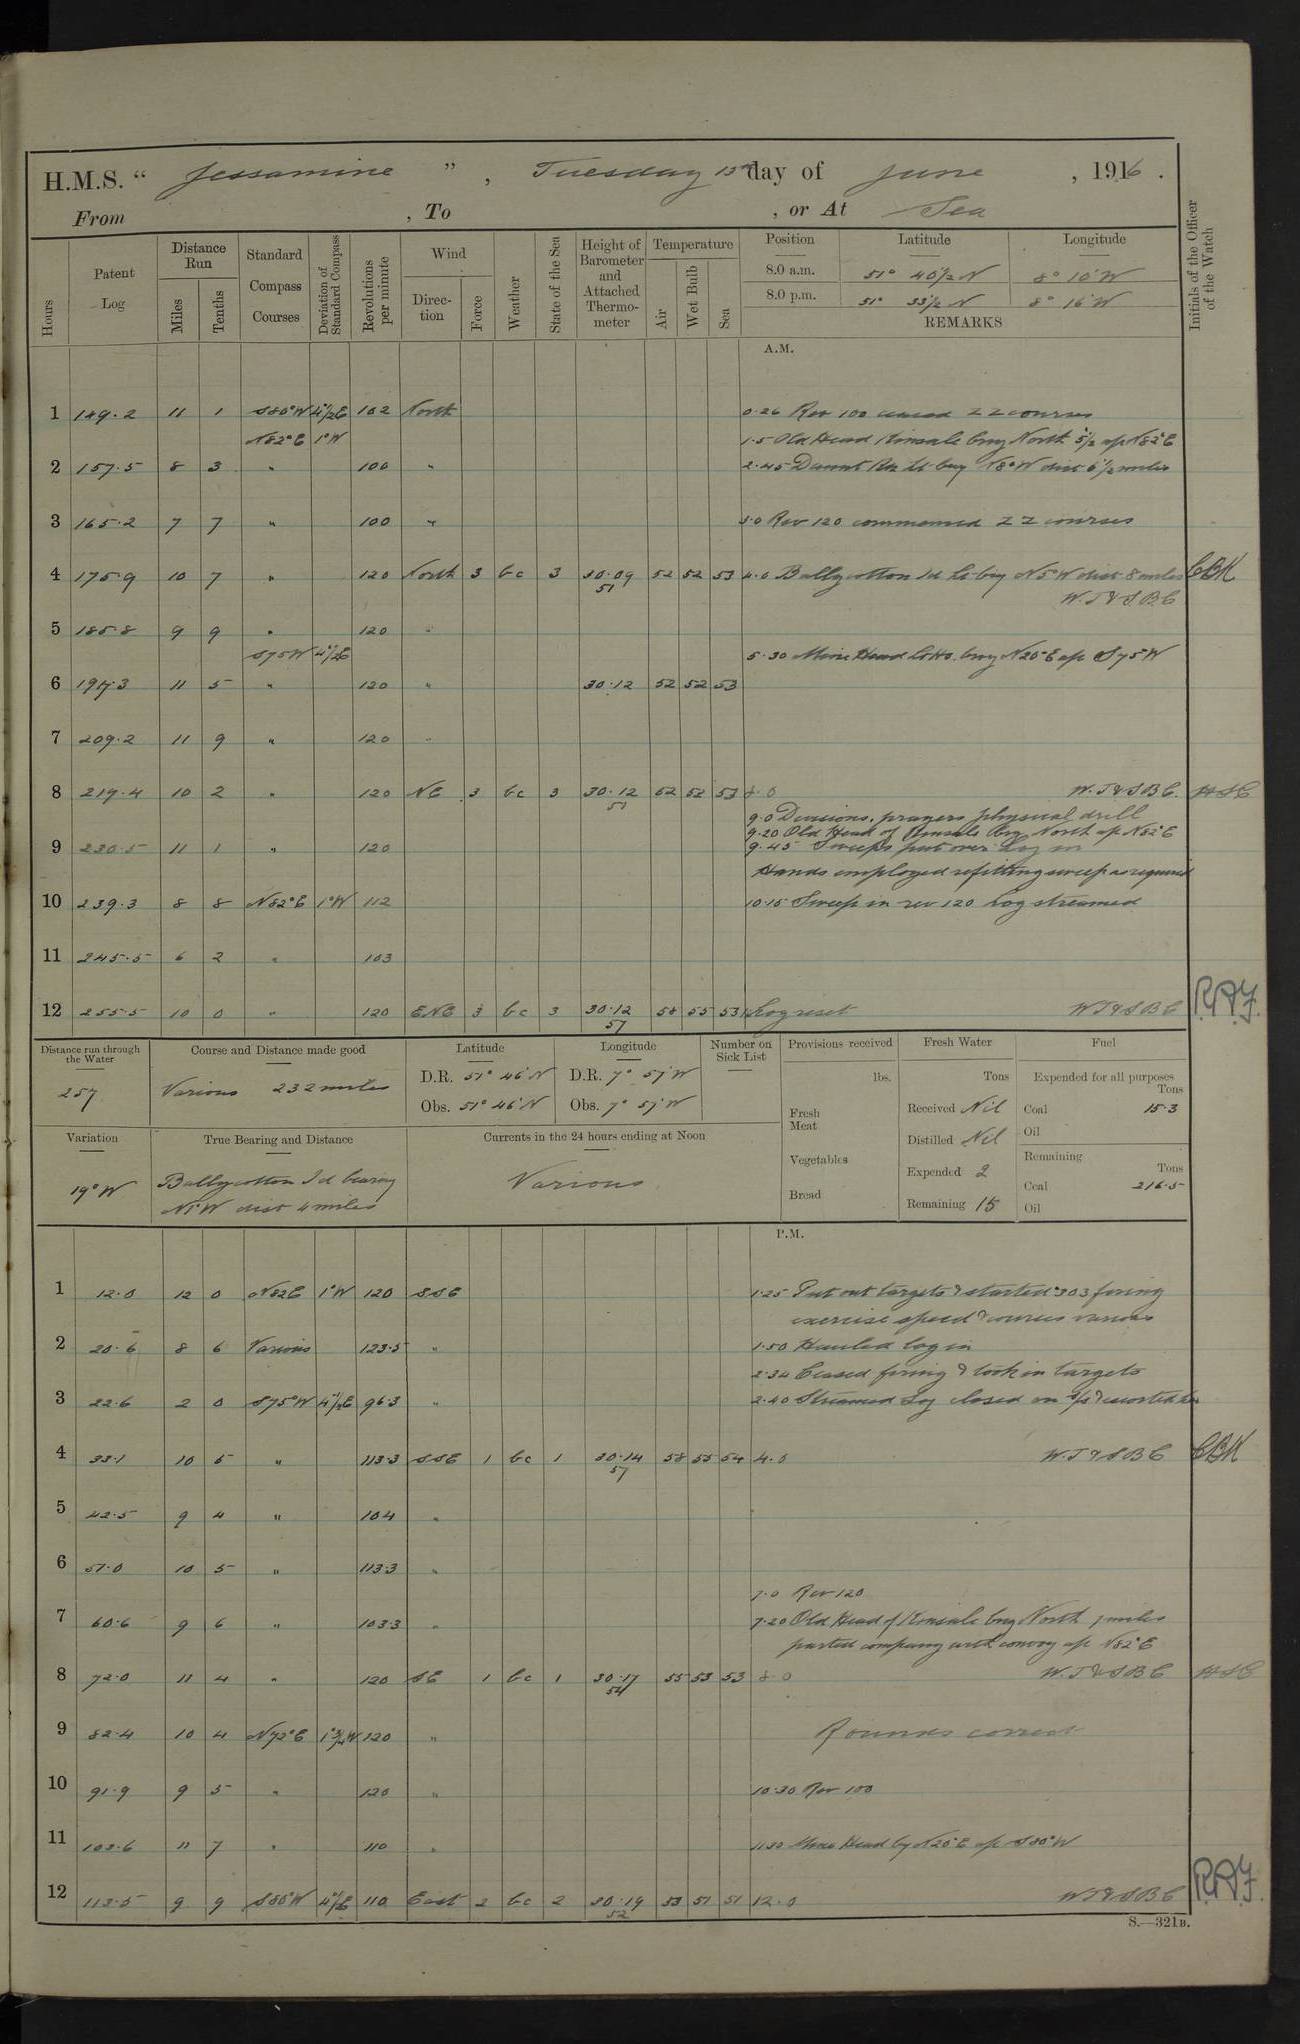 H.M.S. " Jessamine " , Tuesday 13th day of June , 1916 .
From , To , or At Sea
Hours
Patent Log
Distance Run
Miles
Tenths
Standard Compass Courses
Deviation of Standard Compass
Revolutions per minute
Wind
Direction
Force
Weather
State of the Sea
Height of Barometer and Attached Thermometer
Temperature
Air
Wet Bulb
Sea
Position Latitude Longitude
8.0 a.m. 51° 40½ N 8° 10' W
8.0 p.m. 51° 33½ N 8° 16' W
REMARKS
Initials of the Officer of the Watch
A.M.
1 149.2 11 1 S80°W 4½E 102 North 0.26 Rev 100 ceased ZZ courses
N82°E 1°W 1.5 Old Head Kinsale brg North 5½ a/c N82°E
2 157.5 8 3 " 100 " 2.45 Daunt Rk Lt brg N8°W dist 6½ miles
3 165.2 7 7 " 100 " 3.0 Rev 120 commenced ZZ courses
4 175.9 10 7 " 120 North 3 bc 3 30.09 52 52 53 4.0 Ballycotton Id Lt brg N5°W dist 8 miles CBK
51 W.T & S.B.C
5 185.8 9 9 " 120 "
S75W 4½E 5.30 Mine Head Lt Ho. brg N20°E a/c S75W
6 197.3 11 5 " 120 " 30.12 52 52 53
7 209.2 11 9 " 120 "
8 219.4 10 2 " 120 NE 3 bc 3 30.12 52 52 53 8.0 W.T & S.B.C.
51
9.0 Divisions, prayers physical drill
9.20 Old Head of Kinsale brg North a/c N82°E
9 230.5 11 1 " 120 9.45 Sweeps put over Log in
Hands employed refitting sweep as required
10 239.3 8 8 N82°E 1°W 112 10.15 Sweep in rev 120 Log streamed
11 245.5 6 2 " 103
12 255.5 10 0 " 120 ENE 3 bc 3 30.12 58 55 53 Log reset W.T & S.B.C R.A.J.
57
Distance run through the Water
257
Course and Distance made good
Various 232 miles
Latitude
D.R. 51° 46' N
Obs. 51° 46' N
Longitude
D.R. 7° 57' W
Obs. 7° 57' W
Number on Sick List
Provisions received
lbs.
Fresh Meat
Vegetables
Bread
Fresh Water
Tons
Received Nil
Distilled Nil
Expended 2
Remaining 15
Fuel
Expended for all purposes
Tons
Coal 15.3
Oil
Remaining
Tons
Coal 216.5
Oil
Variation
19° W
True Bearing and Distance
Ballycotton Id bearing
N1°W dist 4 miles
Currents in the 24 hours ending at Noon
Various
P.M.
1 12.0 12 0 N82E 1°W 120 SSE 1.25 Put out targets & started .303 firing
exercise speed & courses various
2 20.6 8 6 Various 123.5 " 1.50 Hauled log in
2.34 Ceased firing & took in targets
3 22.6 2 0 S75°W 4½E 96.3 " 2.40 Streamed Log closed on s/s & escorted her
4 33.1 10 5 " 113.3 SSE 1 bc 1 30.14 58 55 54 4.0 W.T & S.B.C CBK
57
5 42.5 9 4 " 104 "
6 51.0 10 5 " 113.3 "
7.0 Rev 120
7 60.6 9 6 " 103.3 " 7.20 Old Head of Kinsale brg North 7 miles
parted company with convoy a/c N82°E
8 72.0 11 4 " 120 SE 1 bc 1 30.17 55 53 53 8.0 W.T & S.B.C
54
9 82.4 10 4 N72°E 1¾W 120 " Rounds correct
10 91.9 9 5 " 120 " 10.30 Rev 100
11 103.6 11 7 " 110 " 11.30 Mine Head by N20°E a/c S80°W
12 113.5 9 9 S80°W 4½E 110 East 2 bc 2 30.19 53 51 51 12.0 W.T & S.B.C R.A.J.
52
S.—321B.